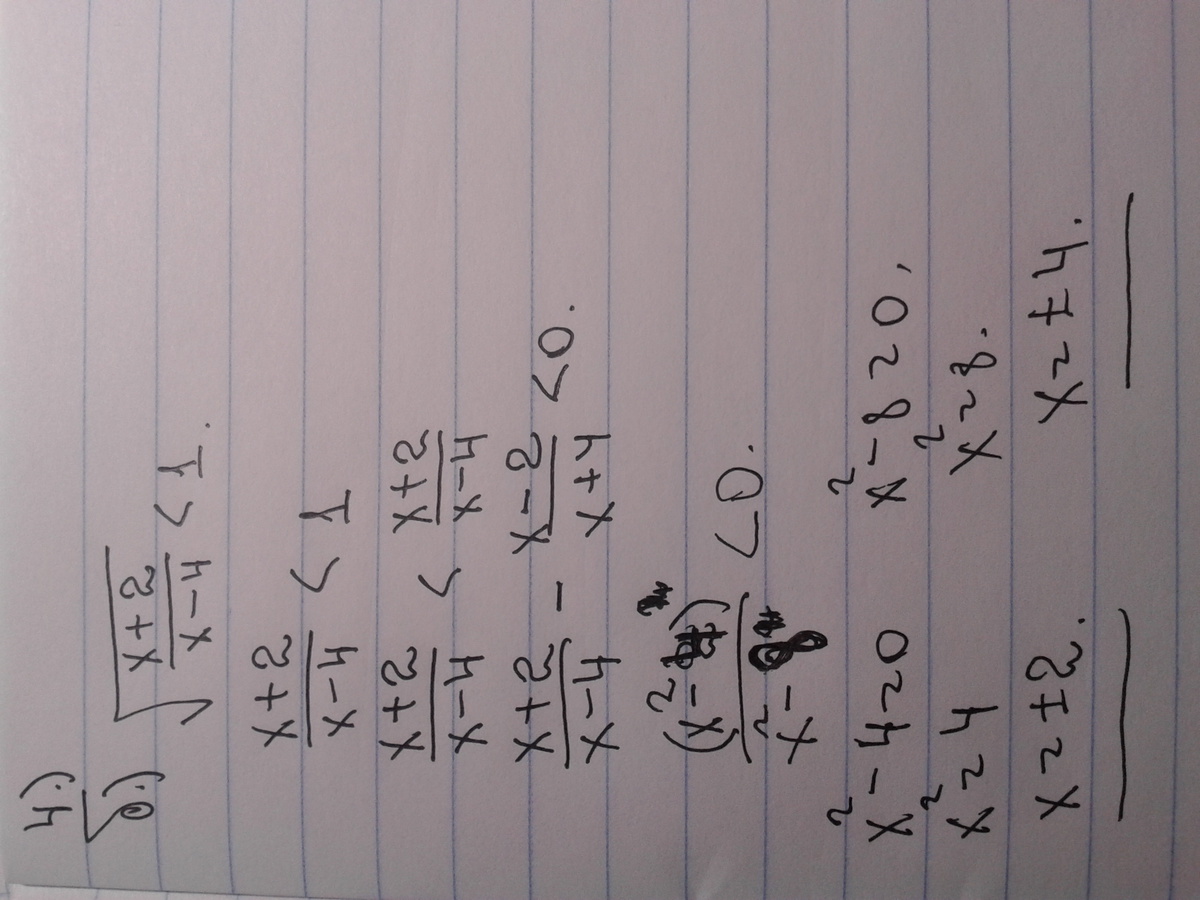 4.)
√0.) √(x+2)/(x-4) < 1.
(x+2)/(x-4) < 1
(x+2)/(x-4) < (x+2)/(x-4)
(x+2)/(x-4) - (x-2)/(x+4) < 0.
x²-4=0 x²-8=0,
x²=4 x²=8.
x=±2. x=±4.